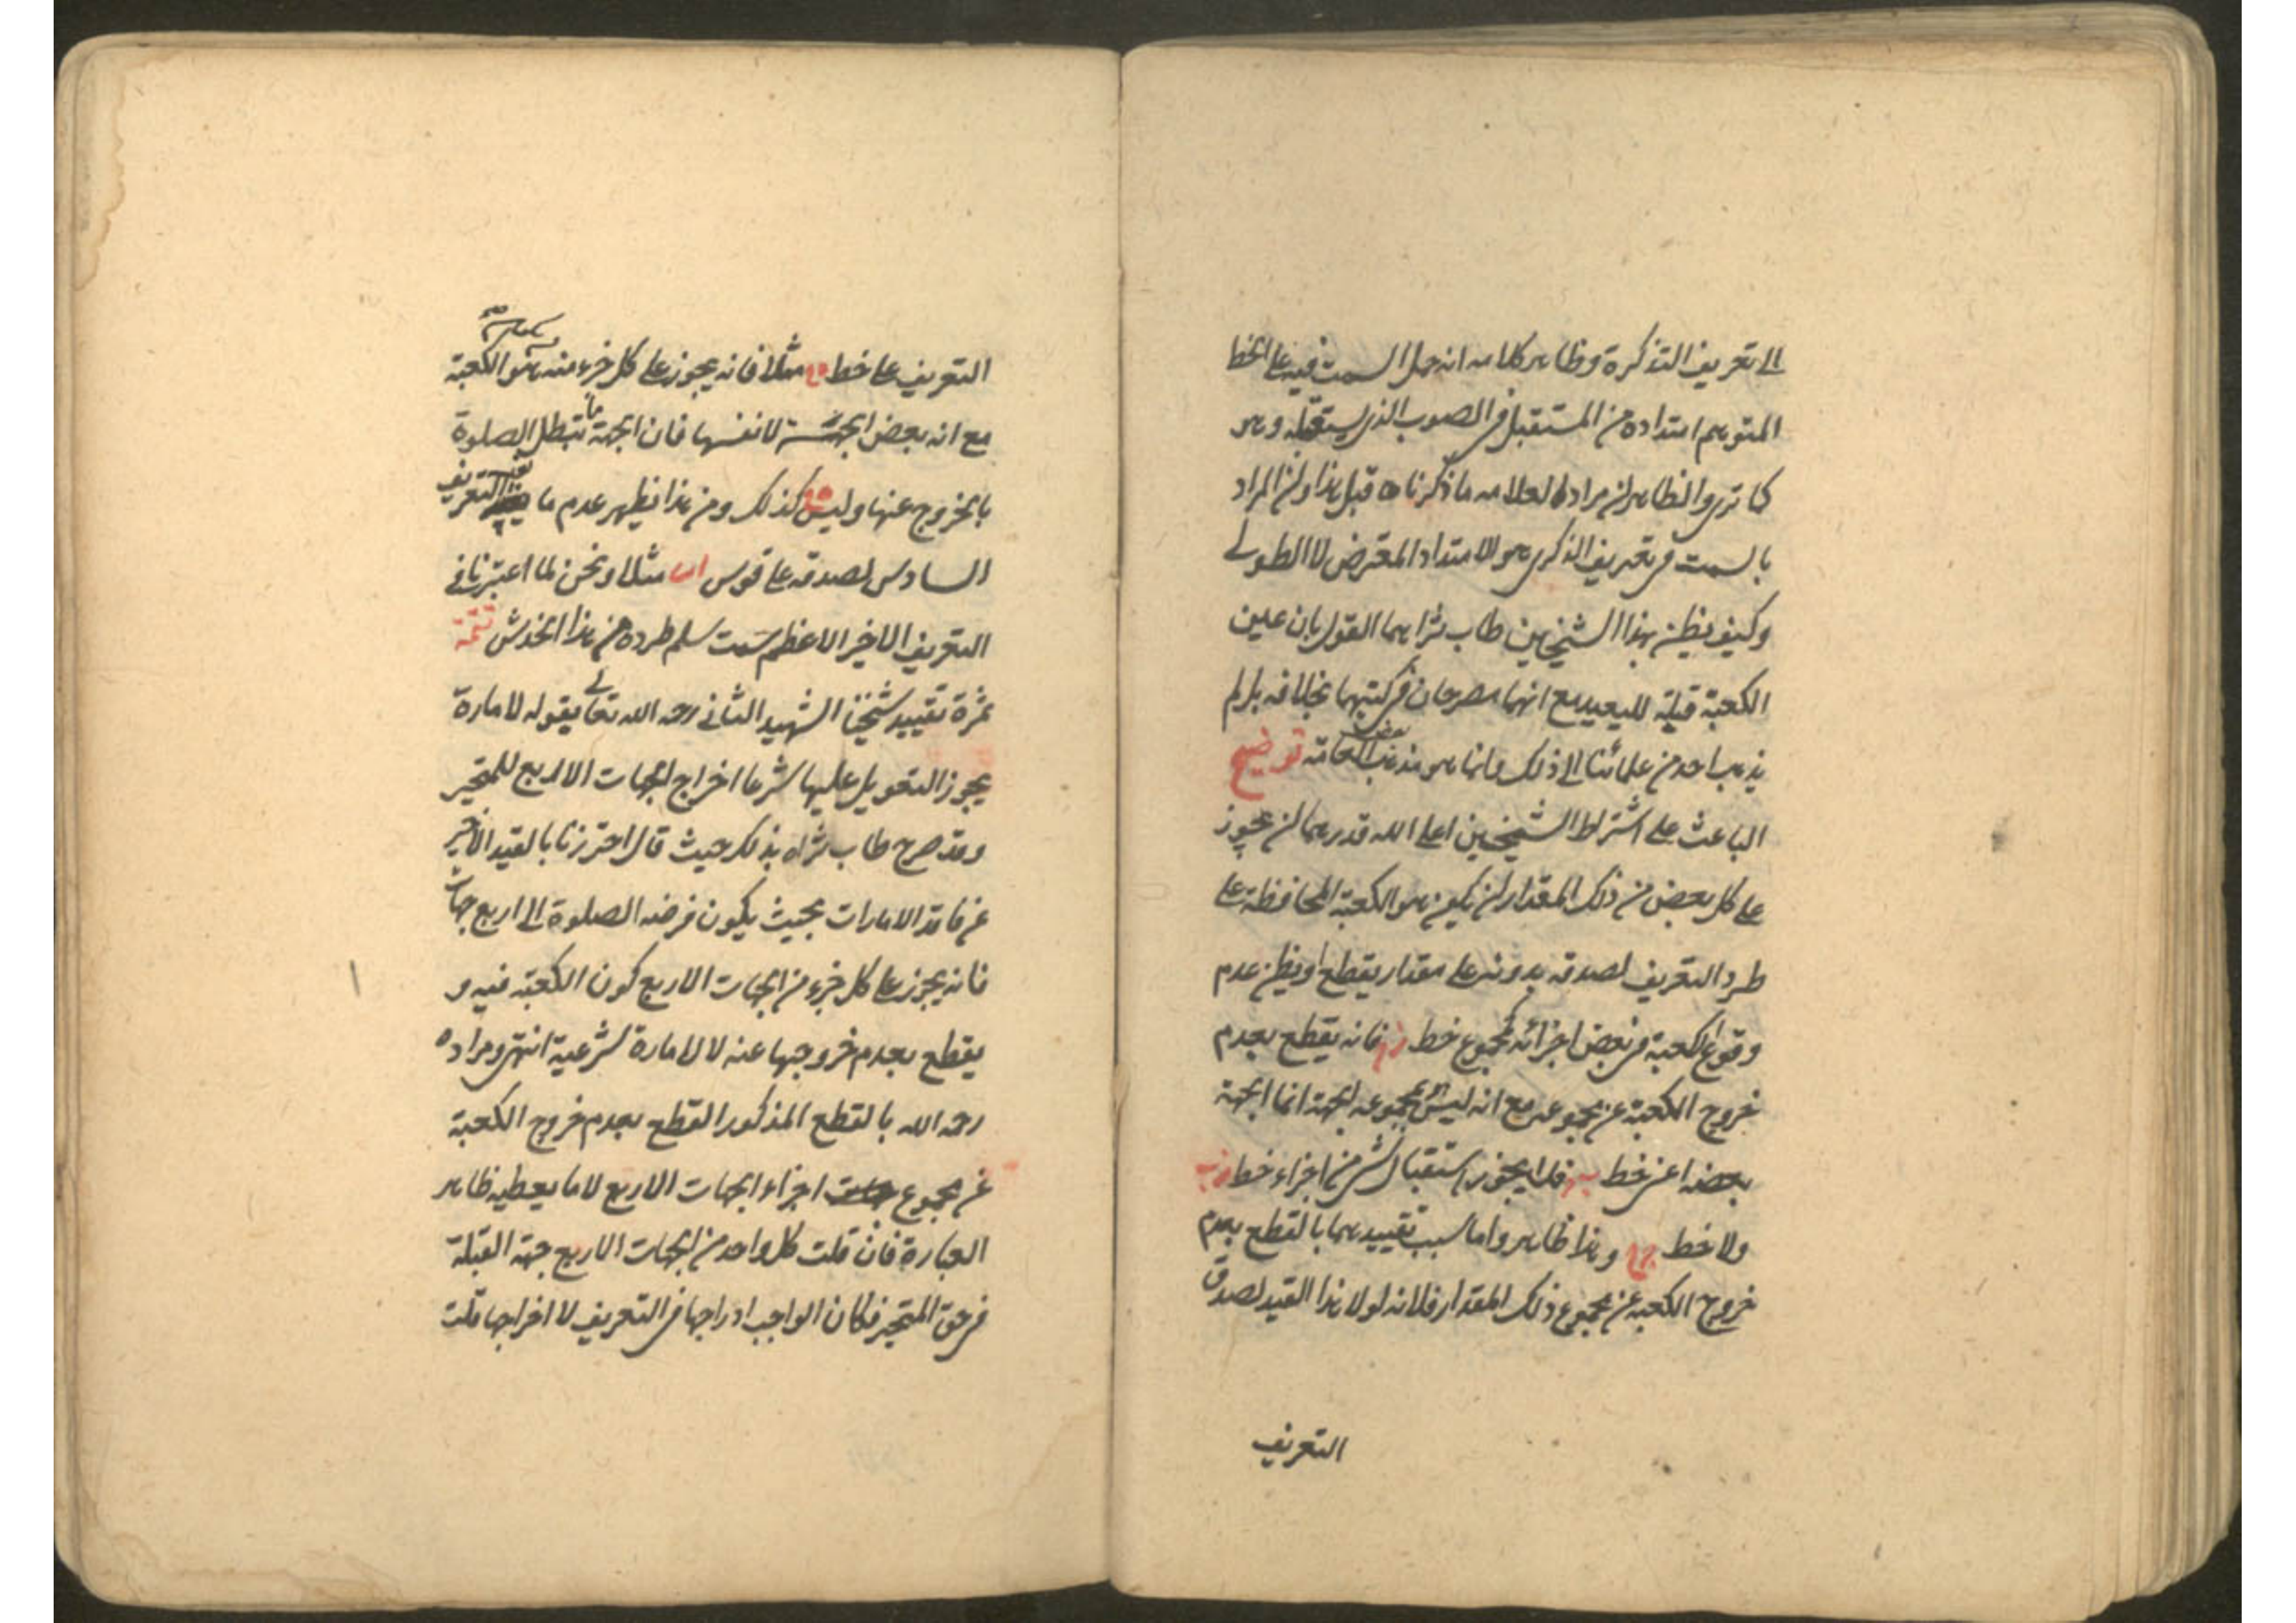 الى تعريف التذكرة وظاهر كلامه انه حمل السمت فيه على الخط
المتوهم امتداده من المستقبل في الصوب الذي يستقبله وهو
كما ترى والظاهر ان مراد العلامه ما ذكرناه قبل هذا وان المراد
بالسمت في تعريف الذكرى هو الامتداد المعترض لا الطولى
وكيف يظن بهذا الشيخين طاب ثراهما القول بان عين
الكعبة قبلة للبعيد مع انهما مصرحان في كتبهما بخلافه بل لم
يذهب احد من علمائنا الى ذلك وانما هو مذهب بعض العامة توضيح
الباعث على اشتراط الشيخين اعلى الله قدرهما ان يجوز
على كل بعض من ذلك المقدار ان يكون هو الكعبة المحافظة على
طرد التعريف لصدقه بدونه على مقدار يقطع او يظن عدم
وقوع الكعبة في بعض اجزائه كمجموع خط فانه يقطع بعدم
خروج الكعبة عن مجموعه مع انه ليس مجموعه الجهة انما الجهة
بعضه اعنى خط فلا يجوز استقبال شئ من اجزاء خط
ولا خط وهذا ظاهر واما سبب تقييدهما بالقطع بعدم
خروج الكعبة عن مجموع ذلك المقدار فلانه لولا هذا القيد لصدق
التعريف
التعريف على خط مثلا فانه يجوز على كل جزء منه هو الكعبة
مع انه بعض الجهة لا نفسها فان الجهة ما تبطل الصلوة
بالخروج عنها وليس كذلك ومن هذا يظهر عدم ما التعريف
السادس لصدقه على قوس اب مثلا ونحن لما اعتبرنا في
التعريف الاخير الاعظم سمت سلم طرده من هذا الخدش تتمة
ثمرة تقييد شيخنا الشهيد الثاني رحمه الله تعالى بقوله لامارة
يجوز التعويل عليها شرعا اخراج الجهات الاربع للمتحير
وقد صرح طاب ثراه بذلك حيث قال احترزنا بالقيد الاخير
عن فاقد الامارات بحيث يكون فرضه الصلوة الى اربع جهات
فانه يجوز على كل جزء من الجهات الاربع كون الكعبة فيه و
يقطع بعدم خروجها عنه لا لامارة شرعية انتهى ومراده
رحمه الله بالقطع المذكور القطع بعدم خروج الكعبة
عن مجموع اجزاء الجهات الاربع لا ما يعطيه ظاهر
العبارة فان قلت كل واحد من الجهات الاربع جهة القبلة
في حق المتحير فكان الواجب ادراجها في التعريف لا اخراجها قلت